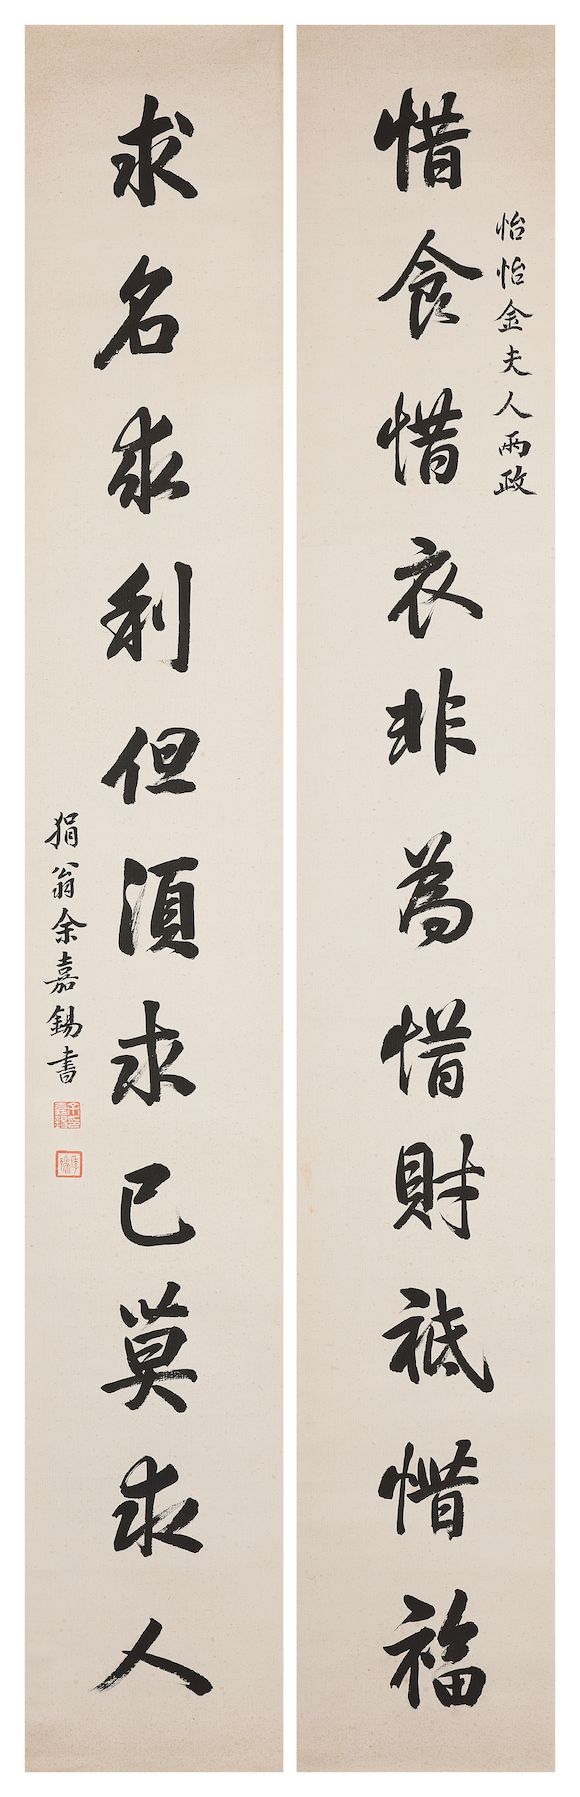 怡怡金夫人兩政
惜食惜衣非為惜財祇惜福
求名求利但須求己莫求人
狷翁余嘉錫書